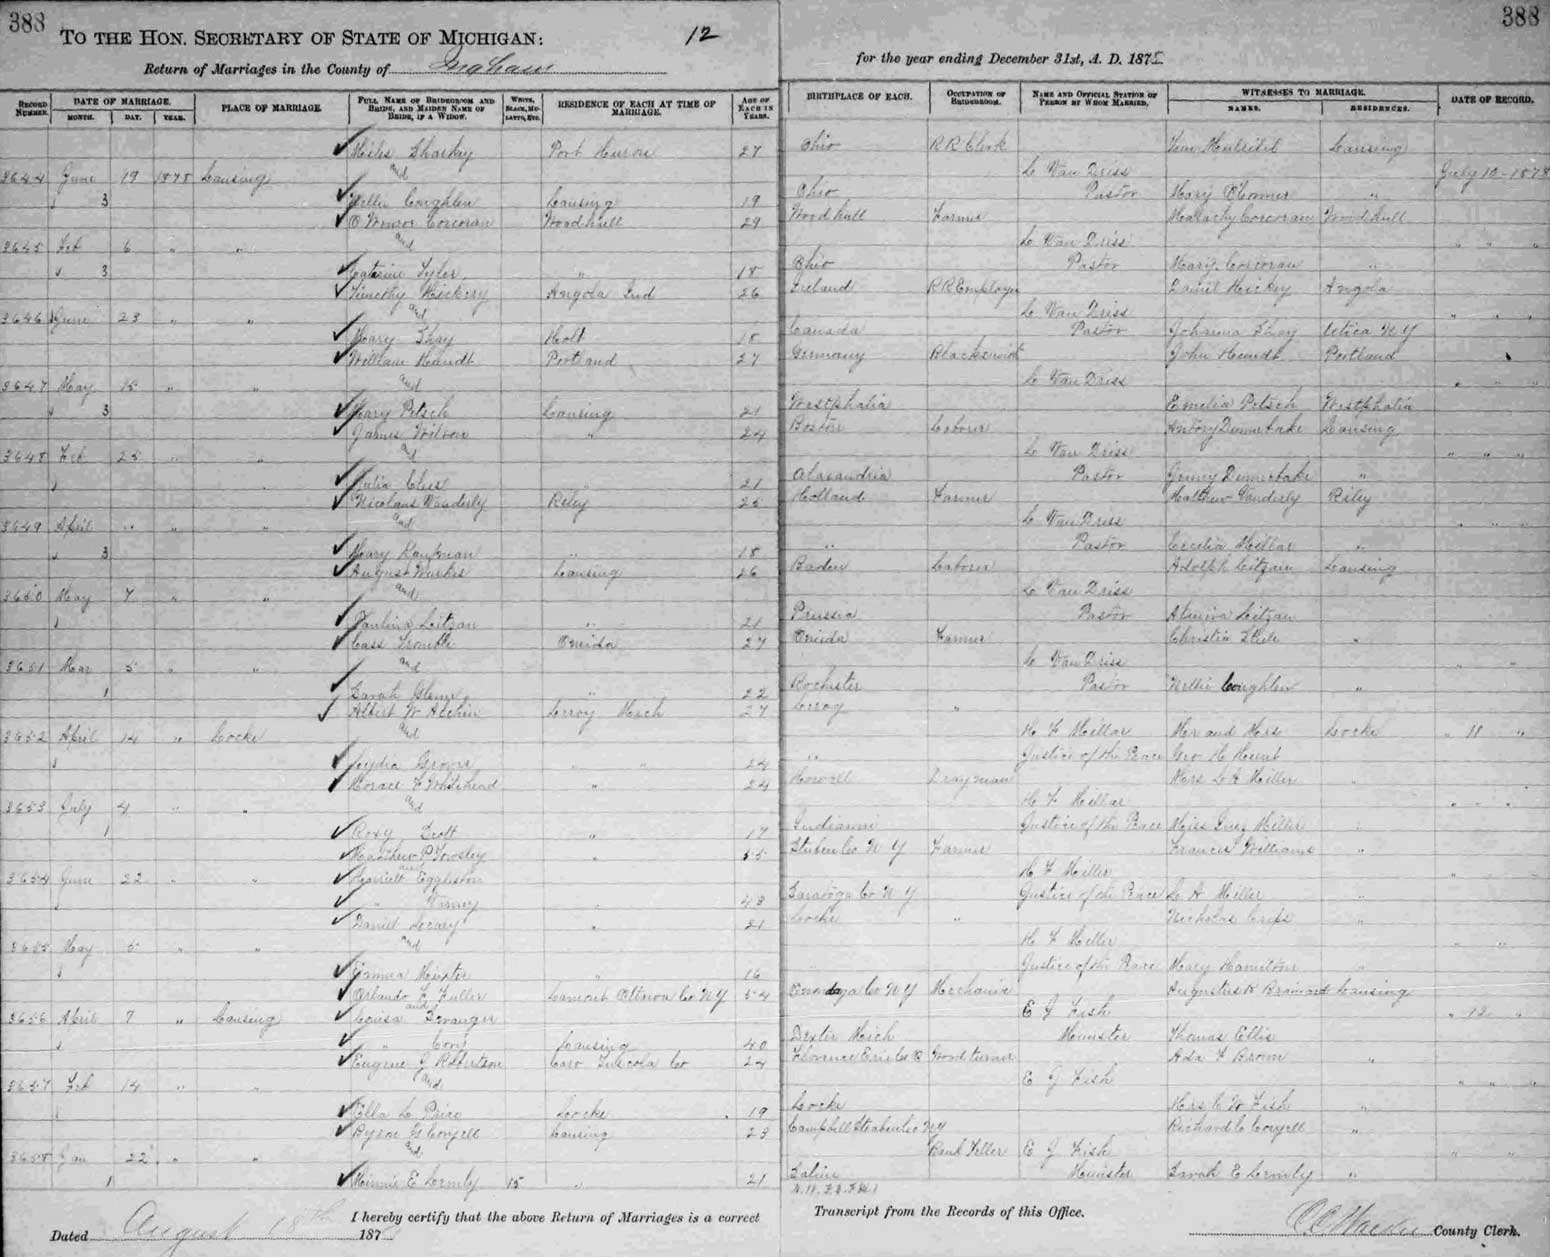 388
388
TO THE HON. SECRETARY OF STATE OF MICHIGAN: 12
Return of Marriages in the County of Ingham
for the year ending December 31st, A. D. 187
RECORD NUMBER. DATE OF MARRIAGE. MONTH. DAY. YEAR. PLACE OF MARRIAGE. FULL NAME OF BRIDEGROOM AND BRIDE, AND MAIDEN NAME OF BRIDE, IF A WIDOW. WHITE, BLACK, MULATTO, ETC. RESIDENCE OF EACH AT TIME OF MARRIAGE. AGE OF EACH IN YEARS.
BIRTHPLACE OF EACH. OCCUPATION OF BRIDEGROOM. NAME AND OFFICIAL STATION OF PERSON BY WHOM MARRIED. WITNESSES TO MARRIAGE. NAMES. RESIDENCES. DATE OF RECORD.
Miles Sharkey Port Huron 27 Ohio RR Clerk Lansing
3644 June 19 1878 Lansing and L Van Driss July 10-1878
3 Nellie Coughlen Lansing 19 Ohio Pastor Mary O'Connor "
Corcoran Woodhull 29 Woodhull Farmer Malachy Corcoran Woodhull
3645 Feb 6 " " and L Van Driss " " "
3 Tyler " 18 Ohio Pastor Mary Corcoran "
Timothy Hickey Angola Ind 26 Ireland RR Employe Daniel Hickey Angola
3646 June 23 " " and L Van Driss " " "
Mary Shay Holt 18 Canada Pastor Johanna Shay Utica N Y
William Hundt Portland 27 Germany Blacksmith John Hundt Portland
3647 May 15 " " and L Van Driss " " "
3 Mary Petsch Lansing 21 Westphalia Emelia Petsch Westphalia
James Wilson " 24 Boston Laborer Antony Dunnebake Lansing
3648 Feb 25 " " and L Van Driss " " "
Julia " 21 Alaxandria Pastor Dunnebake "
Nicolaus Vanderly Riley 25 Holland Farmer Mathew Vanderly Riley
3649 April " " " and L Van Driss " " "
3 Mary Kaufman " 18 " Pastor Cecelia Millar "
August Lansing 26 Baden Laborer Adolph Litzan Lansing
3650 May 7 " " and L Van Driss
Paulina Litzan " 21 Prussia Pastor Litzan
Cass Trimble Oneida 27 Oneida Farmer Christia "
3651 Mar 5 " " and L Van Driss " "
1 Sarah " 22 Rochester Pastor Nellie Coughlen "
Albert W Leroy Mich 27 Leroy "
3652 April 14 " Locke and H F Millar Mr and Mrs Locke " 11 "
Lydia Grover " " 24 " Justice of the Peace Geo H Hunt
Horace F Whitehead " 24 Howell Drayman Mrs L A Miller "
3653 July 4 " " and H F Millar " " "
1 Rosy " 17 Indianna Justice of the Peace Miss Inez Miller "
Matthew P Towsley " 55 Stuben Co N Y Farmer Francis Williams "
3654 June 22 " " and Harriett Eggleston H F Miller " "
" " 43 Saratoga Co N Y Justice of the Peace L A Miller "
Daniel " 21 Locke " Nicholas "
3655 May 5 " " and H F Miller " "
" 16 Justice of the Peace Mary Hamilton "
Orlando F Fuller Lamont Ottawa Co NY 54 Onondaga Co N Y Mechanic Augustus R Brainard Lansing
3656 April 7 " Lansing and Louisa E J Fish " 12 "
" Cory Lansing 40 Dexter Mich Minister Thomas Ellis
Eugene J Robertson Caro Tuscola Co 24 Florence Erie Co Woodturner Ada F Brown "
3657 Feb 14 " " and E J Fish " " "
Ella L Price Locke 19 Locke Mrs C W Fish "
Byron G Coryell Lansing 23 Campbell Steuben Co NY Richard C Coryell "
3658 Jan 22 " " and Bank Teller E J Fish " "
1 Minnie E 15 " 21 Saline Minister Sarah E "
I hereby certify that the above Return of Marriages is a correct
Transcript from the Records of this Office.
Dated August 18th 187
County Clerk.